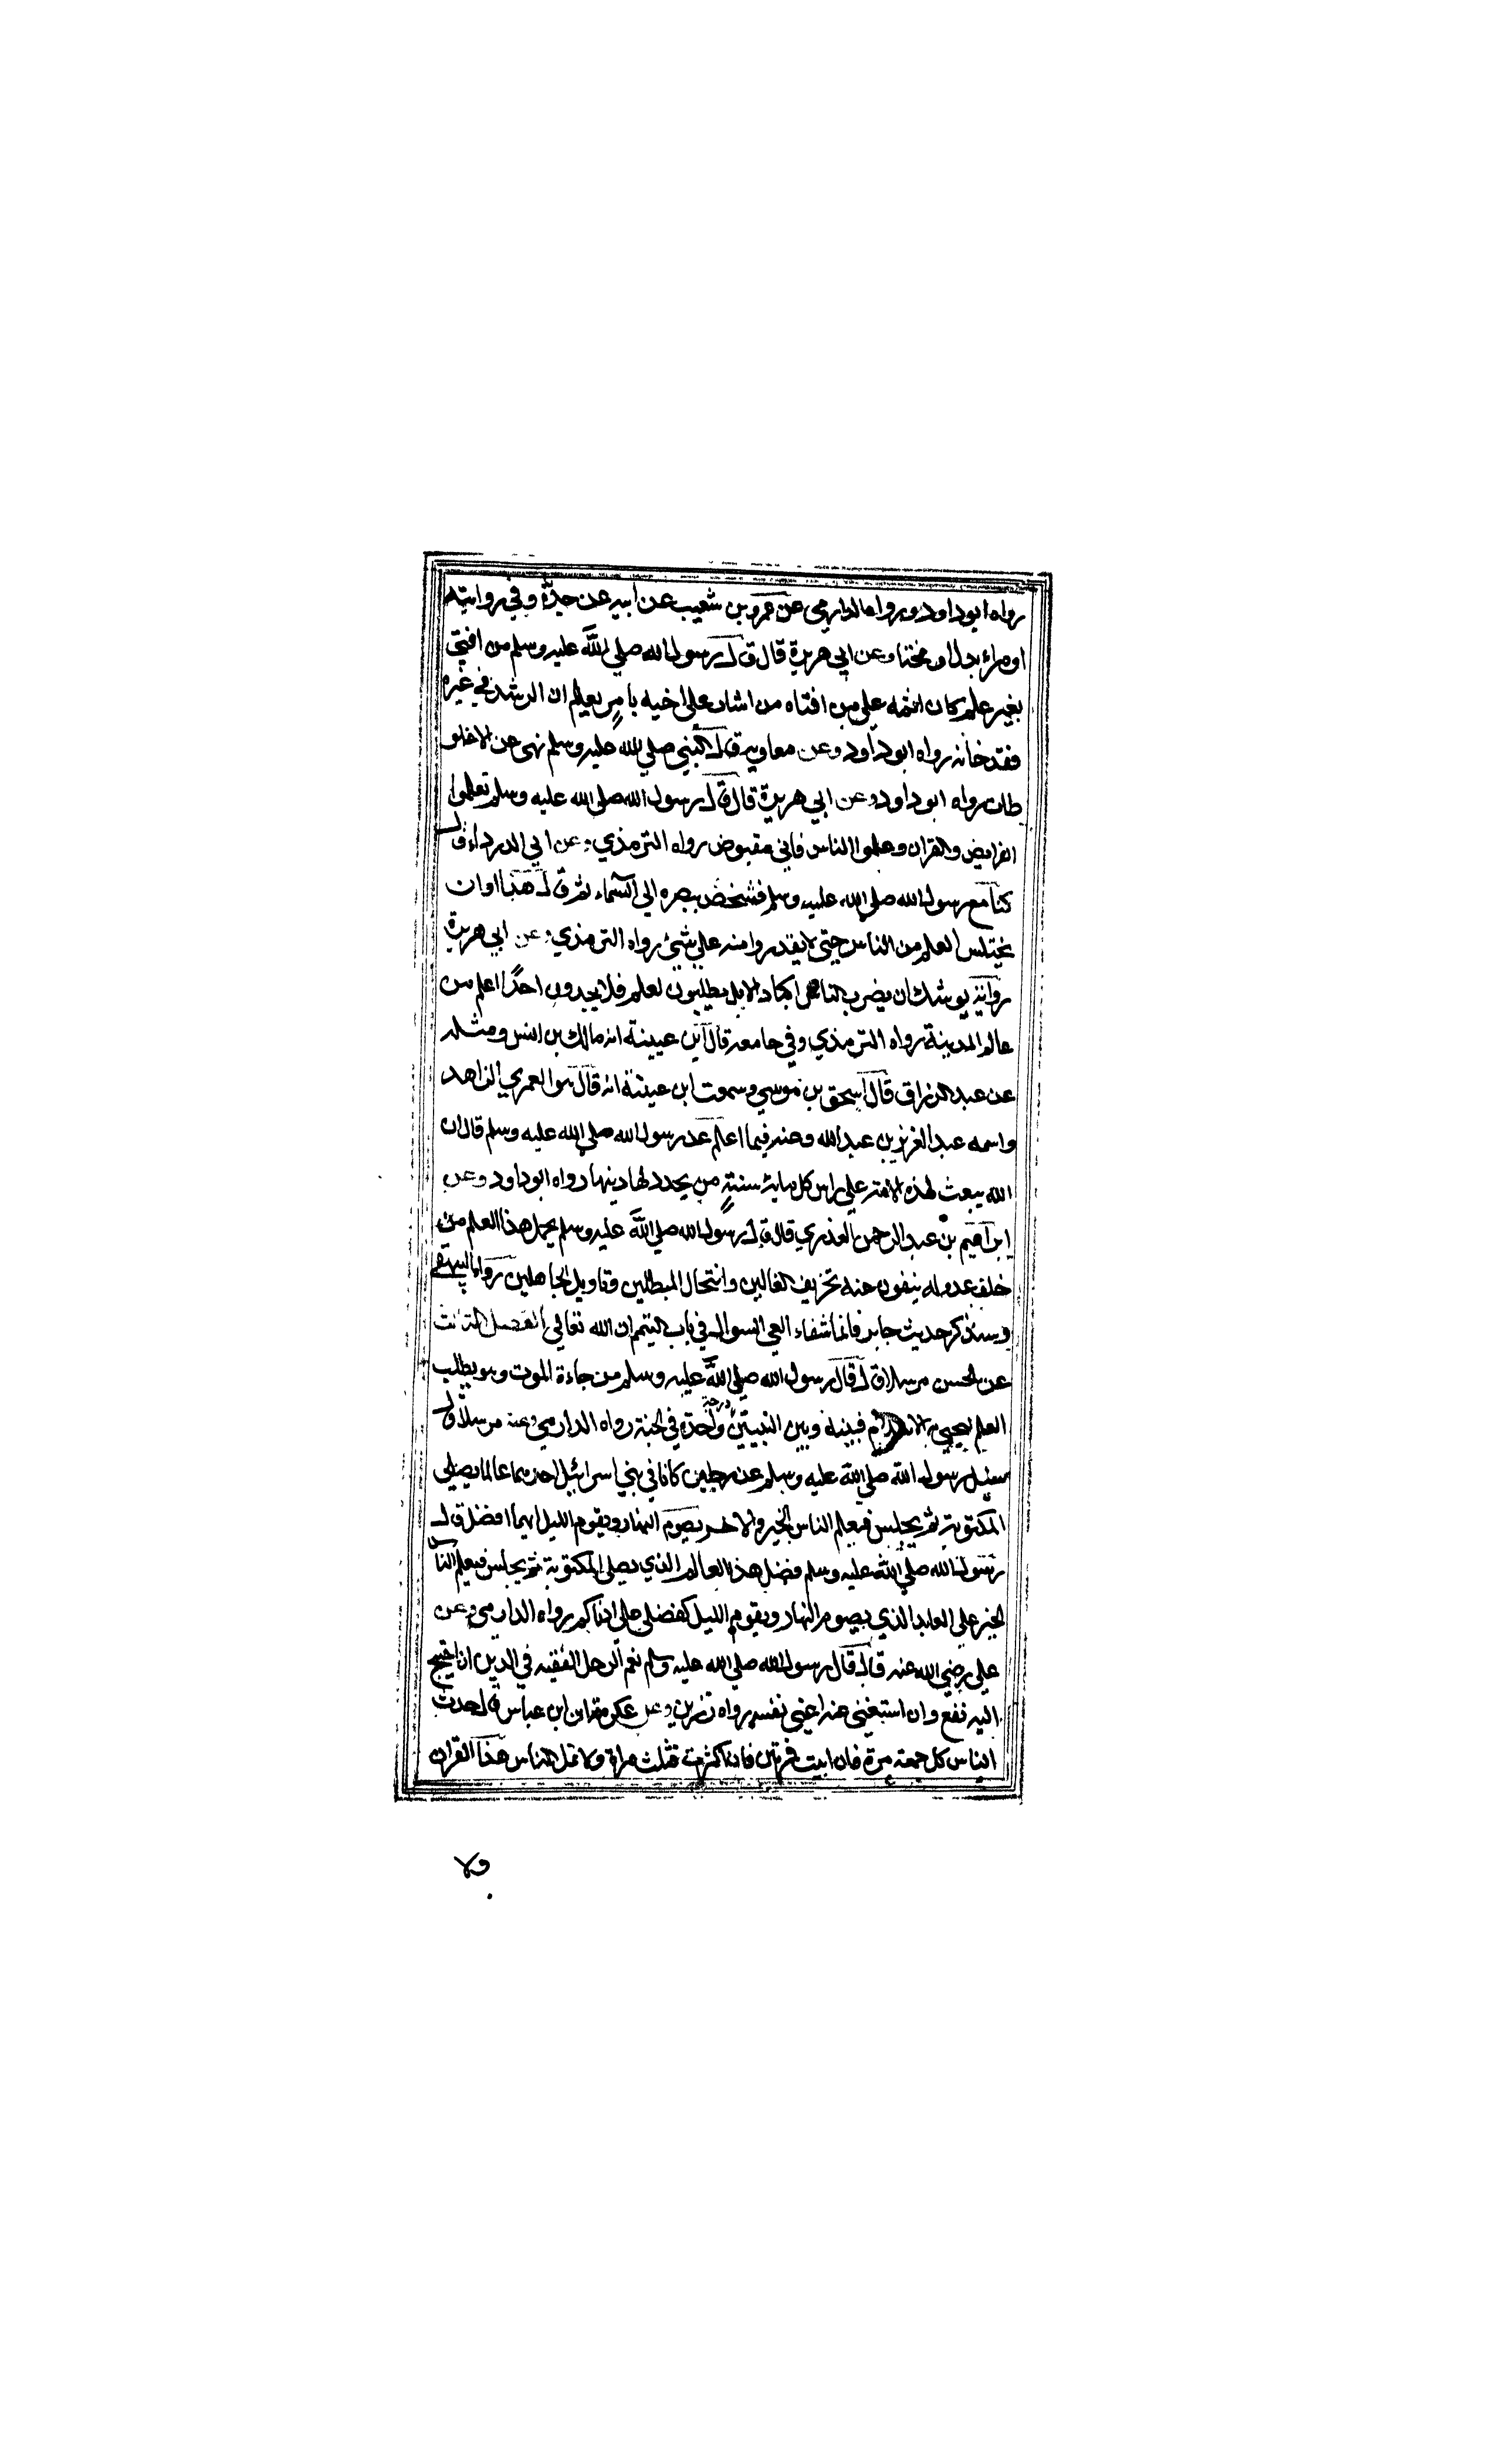 رواه ابو داود ورواه الدارمي عن عمرو بن شعيب عن ابيه عن جدّه وفي روايته
او مراء بدل او مختال وعن ابي هريرة قال قال رسول الله صلي اللّه عليه وسلم من افتي
بغير علم كان اثمه علي من افتاه من اشار علي اخيه بامرٍ يعلم ان الرشد في غيره
فقد خانه رواه ابو داود وعن معاوية قال النبي صلي الله عليه وسلم نهي عن الاغلو
طات رواه ابو داود وعن ابي هريرة قال قال رسول الله صلي الله عليه وسلم تعلموا
الفرايض والقران وعلموا الناس فاني مقبوض رواه الترمذي وعن ابي الدرداء قال
كنا مع رسول الله صلي الله عليه وسلم فشخص ببصره الي السماء ثم قال هذا اوان
يختلس العلم من الناس حتي لا يقدروا منه علي شئ رواه الترمذي وعن ابي هريرة
رواية يوشك ان يضرب الناس اكباد الابل يطلبون العلم فلا يجدون احدًا اعلم من
عالم المدينة رواه الترمذي وفي جامعه قال ابن عيينة انه مالك بن انس ومثله
عن عبد الرزاق قال اسحق بن موسي وسمعت ابن عيينة انه قال هو العمري الزاهد
واسمه عبد العزيز بن عبد الله وعنه فيما اعلم عن رسول الله صلي الله عليه وسلم قال ان
الله يبعث لهذه الامة علي راس كل ماية سنةٍ من يجدد لها دينها رواه ابو داود وعن
ابراهيم بن عبد الرحمن العذري قال قال رسول الله صلي اللّه عليه وسلم يحمل هذا العلم من
خلف عدوله ينفون عنه تحريف الغالين وانتحال المبطلين وتاويل الجاهلين رواه البيهقي
وسنذكر حديث جابر فانما شفاء العي السوال في باب التيمم ان الله تعالي الفصل الثالث
عن الحسن مرسلا قال قال رسول الله صلي اللّه عليه وسلم من جاءه الموت وهو يطلب
العلم ليحيي به الاسلام فبينه وبين النبيين درجة واحدة في الجنة رواه الدارمي وعنه مرسلا قال
سئل رسول الله صلي الله عليه وسلم عن رجلين كانا في بني اسرائيل احدهما عالما يصلي
المكتوبة ثم يجلس فيعلم الناس الخير والاخر يصوم النهار ويقوم الليل ايهما افضل قال
رسول الله صلي الله عليه وسلم فضل هذا العالم الذي يصلي المكتوبة ثم يجلس فيعلم الناس
الخير علي العابد الذي يصوم النهار ويقوم الليل كفضلي علي ادناكم رواه الدارمي وعن
علي رضي الله عنه قال قال رسول الله صلي الله عليه وسلم نعم الرجل الفقيه في الدين ان احتيج
اليه نفع وان استغني عنه اغني نفسه رواه رزين وعن عكرمة ان ابن عباس قال حدث
الناس كل جمعة مرة فان ابيت فمرتين فان اكثرت فثلث مراة ولا تمل الناس هذا القران
ولا